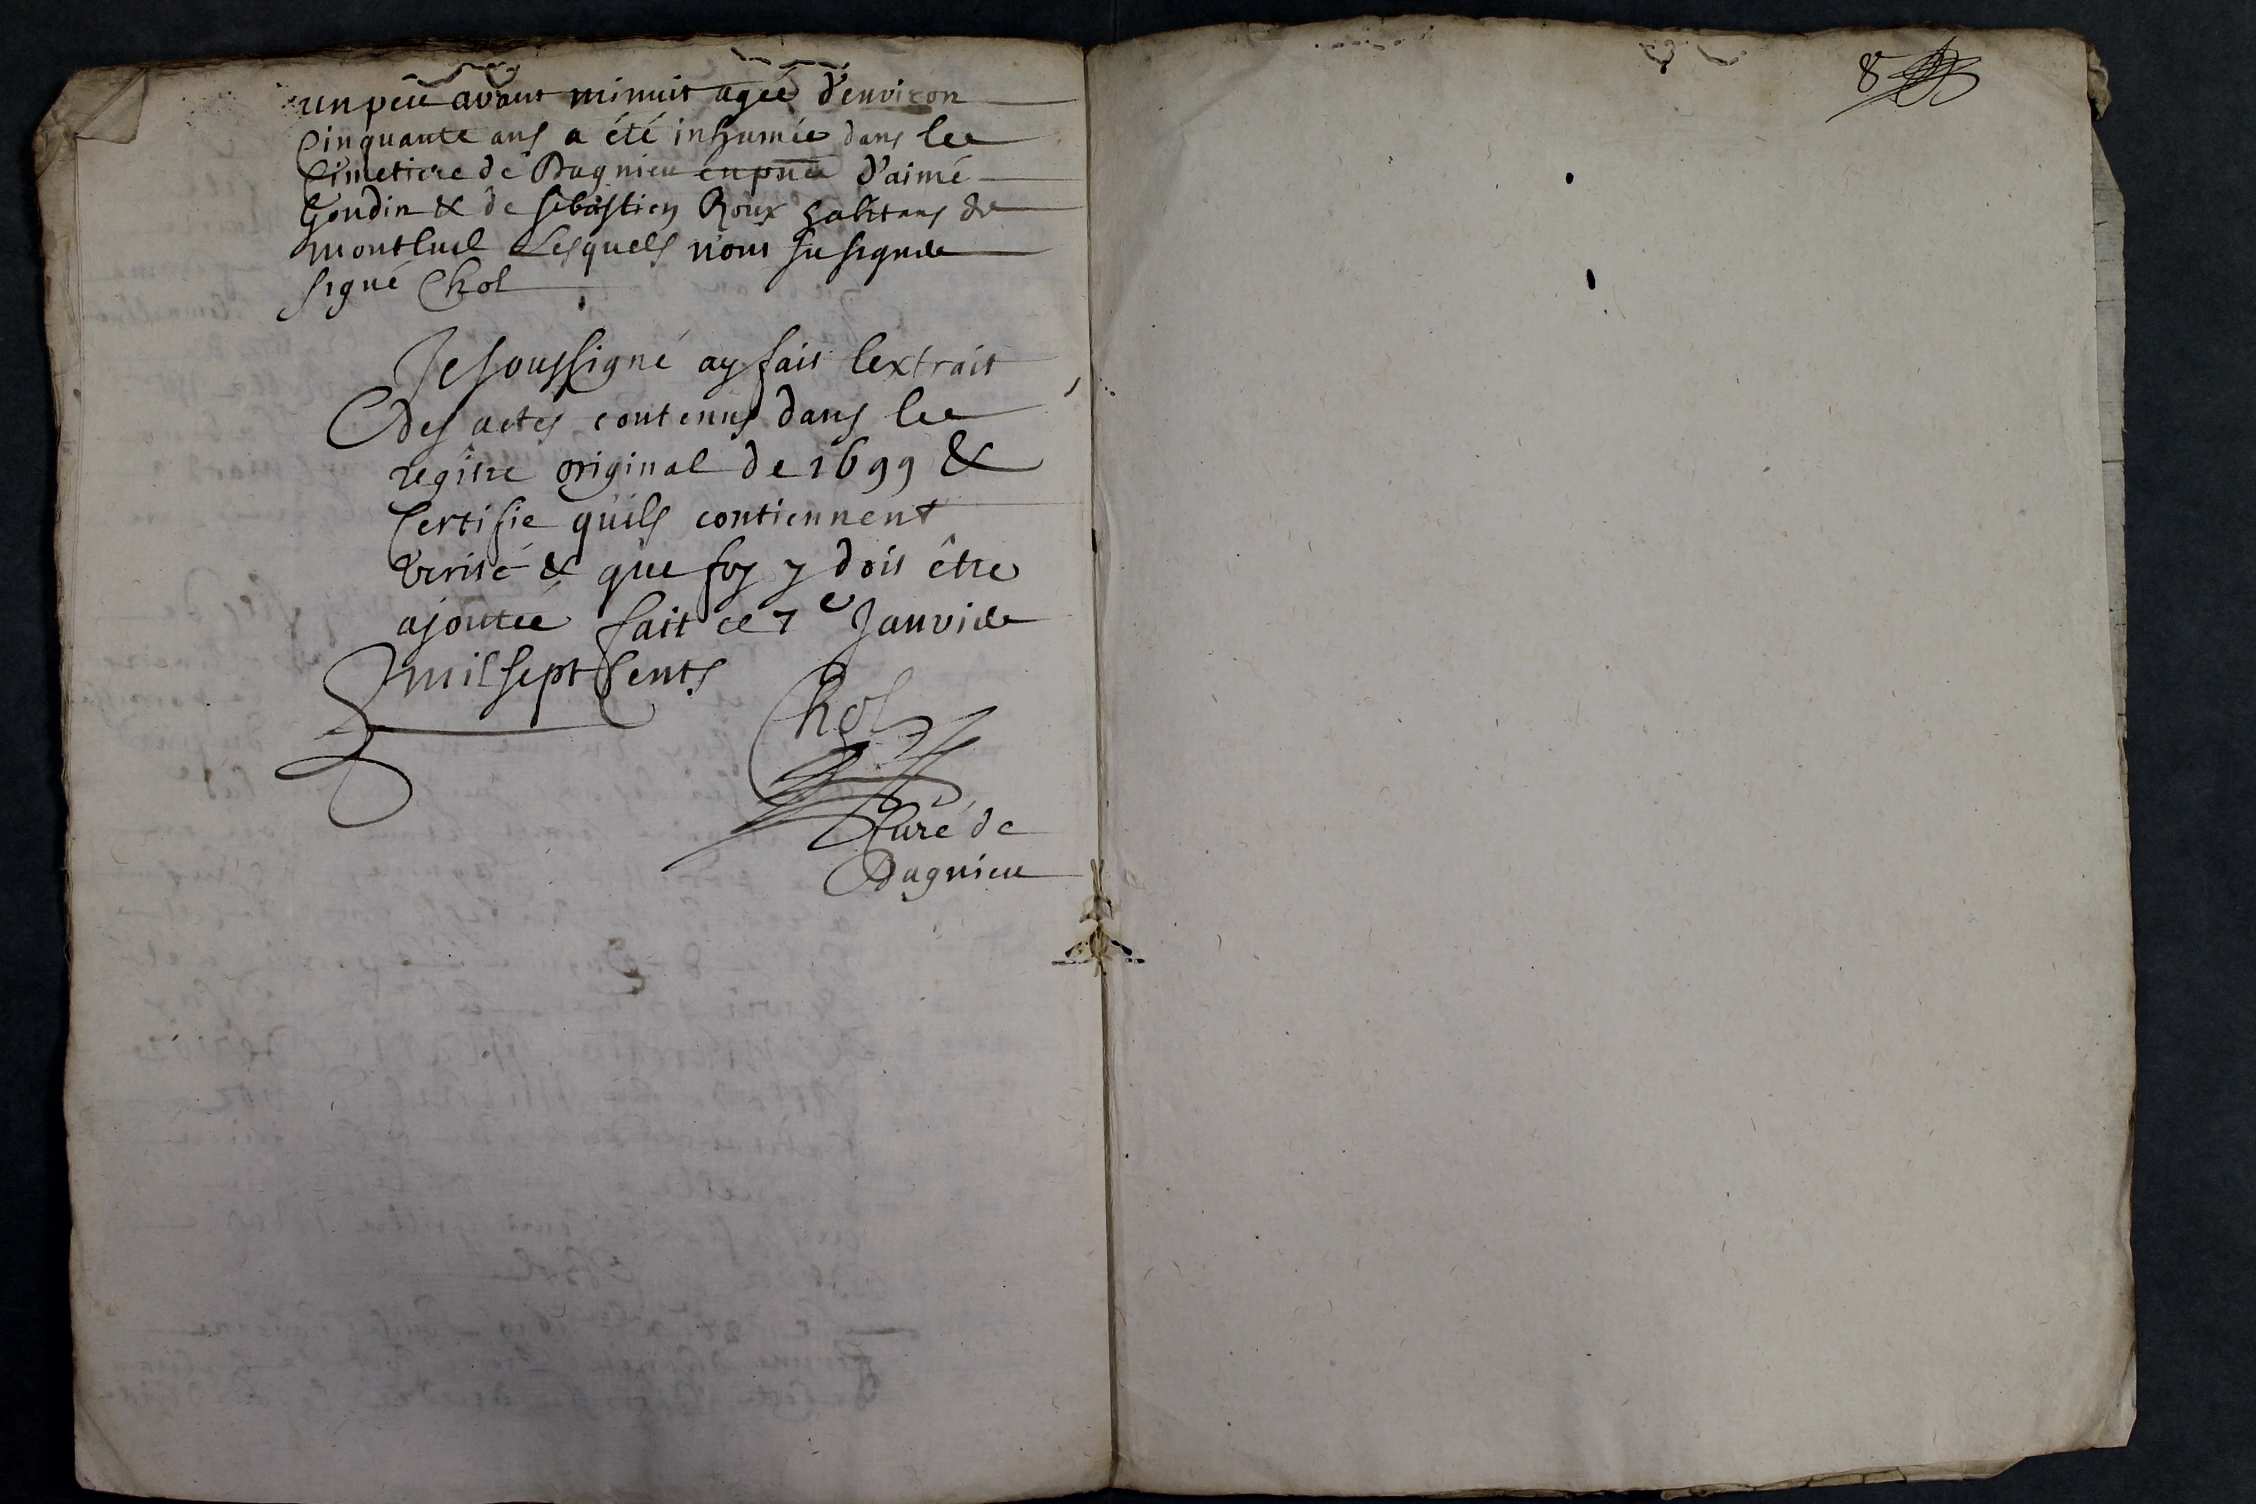 un peu avant minuit agée d'environ
Cinquante ans a été inhumée dans le
Cimetiere de Dagnieu en pnce d'aimé
Goudin & de sebastien Roux habitans de
montluel Lesquels n'ont su signer
signé Chol
Je soussigné ay fait lextrait
des actes contenus dans le
regitre original de 1699 &
Certifie quils contiennent
verité & que foy y doit être
ajoutée fait ce 7e Janvier
mil sept Cents
Chol
Curé de
Dagnieu
8